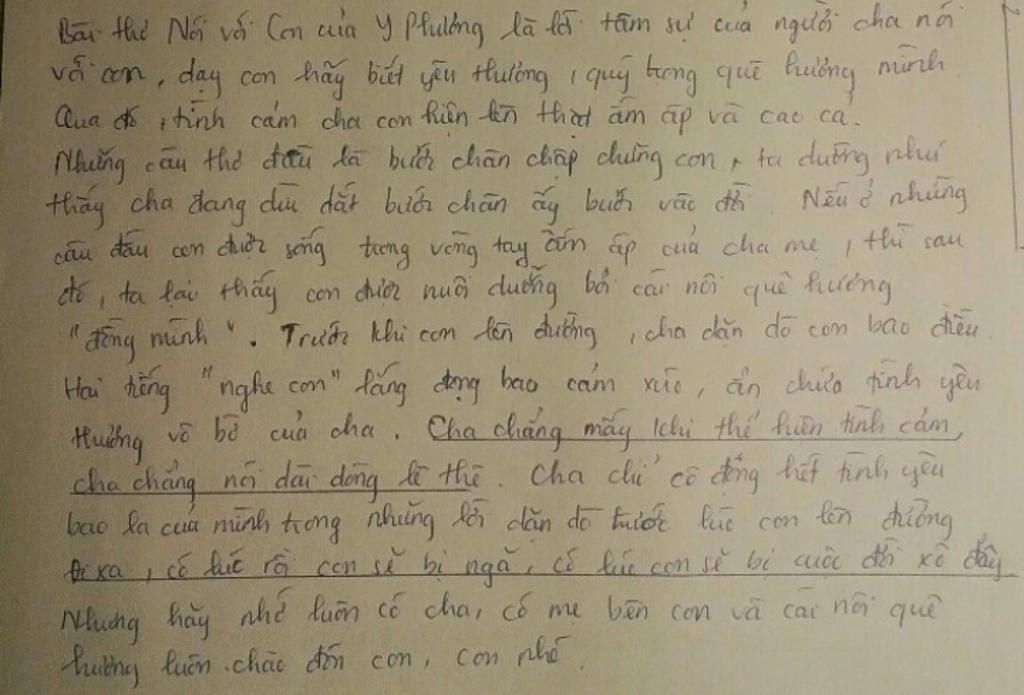 Bài thơ Nói với Con của Y Phương là lời tâm sự của người cha nói
với con, dạy con hãy biết yêu thương, quý trọng quê hương mình.
Qua đó, tình cảm cha con hiện lên thật ấm áp và cao cả.
Những câu thơ đầu là bước chân chập chững con, ta dường như
thấy cha đang dìu dắt bước chân ấy bước vào đời. Nếu ở những
câu đầu con được sống trong vòng tay ấm áp của cha mẹ, thì sau
đó, ta lại thấy con được nuôi dưỡng bởi cái nôi quê hương
"đồng mình". Trước khi con lên đường, cha dặn dò con bao điều.
Hai tiếng "nghe con" lắng đọng bao cảm xúc, ẩn chứa tình yêu
thương vô bờ của cha. Cha chẳng mấy khi thể hiện tình cảm,
cha chẳng nói dài dòng lê thê. Cha chỉ cô đọng hết tình yêu
bao la của mình trong những lời dặn dò trước lúc con lên đường
đi xa, có lúc rồi con sẽ bị ngã, có lúc con sẽ bị cuộc đời xô đẩy
Nhưng hãy nhớ luôn có cha, có mẹ bên con và cái nôi quê
hương luôn chào đón con, con nhé.